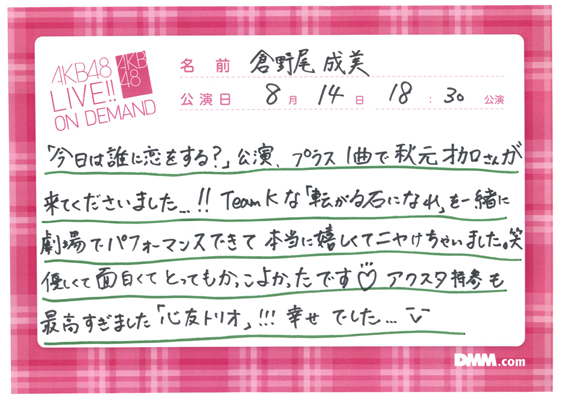 AKB48
LIVE!!
ON DEMAND
AKB
48
名前 倉野尾成美
公演日 8月14日 18:30公演
「今日は誰に恋をする?」公演、プラス1曲で秋元才加さんが
来てくださいました…!! TeamKな「転がる石になれ」を一緒に
劇場でパフォーマンスできて本当に嬉しくてニヤけちゃいました。笑
優しくて面白くてとってもかっこよかったです♡ アクスタ持参も
最高すぎました「心友トリオ」!!! 幸せでした…
DMM.com